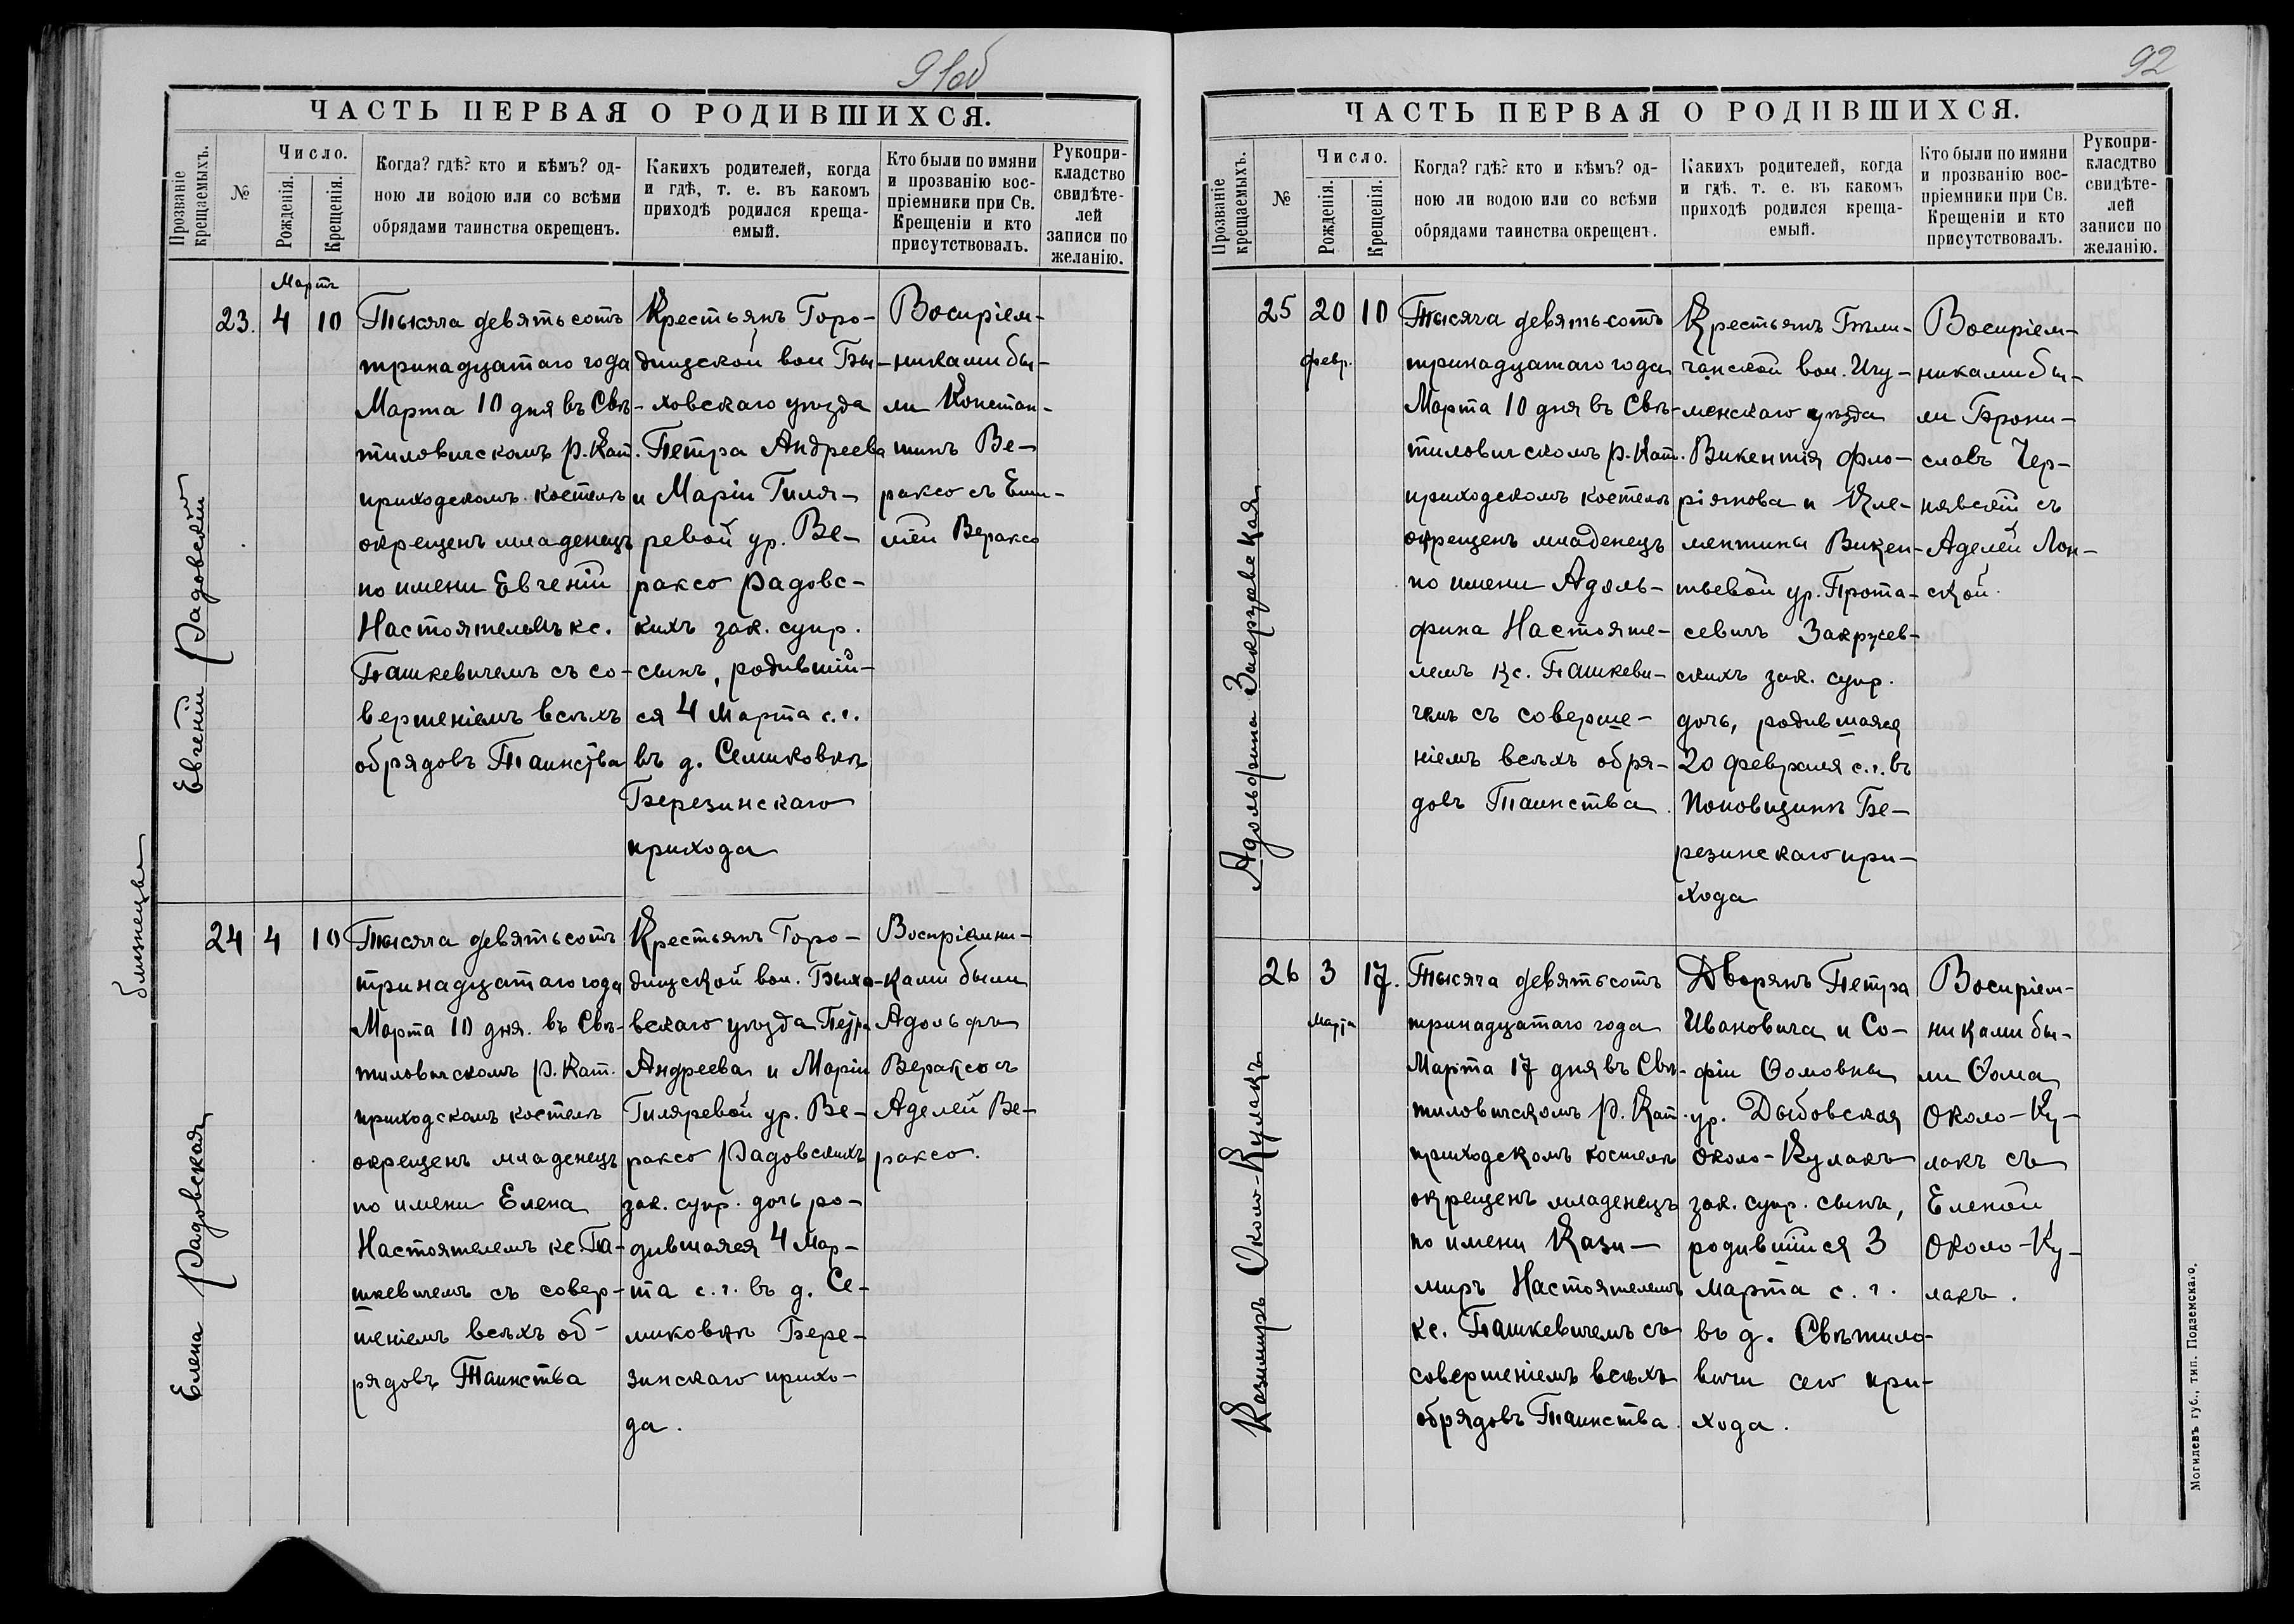 91об
ЧАСТЬ ПЕРВАЯ О РОДИВШИХСЯ.
Прозваніе крещаемыхъ.
№
Число.
Рожденія.
Крещенія.
Когда? гдѣ? кто и кѣмъ? од-
ною ли водою или со всѣми
обрядами таинства окрещенъ.
Какихъ родителей, когда
и гдѣ, т. е. въ какомъ
приходѣ родился креща-
емый.
Кто были по имяни
и прозванію вос-
пріемники при Св.
Крещеніи и кто
присутствовалъ.
Рукопри-
кладство
свидѣте-
лей
записи по
желанію.
близнецы
Евгеній Радовскій
23.
Мартъ
4
10
Тысяча девятьсотъ
тринадцатаго года
Марта 10 дня въ Свѣ-
тиловичскомъ р. Кат.
приходскомъ костелѣ
окрещенъ младенецъ
по имени Евгеній
Настоятелемъ кс.
Пашкевичемъ съ со-
вершеніемъ всѣхъ
обрядовъ Таинства
Крестьянъ Горо-
дищской вол Бы-
ховскаго уѣзда
Петра Андреева
и Маріи Гиля-
ревой ур. Ве-
раксо Радовс-
кихъ зак. супр.
сынъ, родившій-
ся 4 Марта с.г.
въ д. Семиковкѣ
Березинскаго
прихода
Воспріем-
никами бы-
ли Констан-
тинъ Ве-
раксо съ Еми-
ліей Вераксо
Елена Радовская
24
4
10
Тысяча девятьсотъ
тринадцатаго года
Марта 10 дня. въ Свѣ-
тиловичскомъ р. Кат.
приходскомъ костелѣ
окрещенъ младенецъ
по имени Елена
Настоятелемъ кс. Па-
шкевичемъ съ совер-
шеніемъ всѣхъ об-
рядовъ Таинства
Крестьянъ Горо-
дищской вол. Быхо-
вскаго уѣзда Петра
Андреева и Маріи
Гиляревой ур. Ве-
раксо Радовскихъ
зак. супр. дочь ро-
дившаяся 4 Мар-
та с.г. въ д. Се-
миковкѣ Бере-
зинскаго прихо-
да.
Воспріемни-
ками были
Адольфъ
Вераксо съ
Аделей Ве-
раксо.
92
ЧАСТЬ ПЕРВАЯ О РОДИВШИХСЯ.
Прозваніе крещаемыхъ.
№
Число.
Рожденія.
Крещенія.
Когда? гдѣ? кто и кѣмъ? од-
ною ли водою или со всѣми
обрядами таинства окрещенъ.
Какихъ родителей, когда
и гдѣ. т. е. въ какомъ
приходѣ родился креща-
емый.
Кто были по имяни
и прозванію вос-
пріемники при Св.
Крещеніи и кто
присутствовалъ.
Рукопри-
класдтво
свидѣте-
лей
записи по
желанію.
Адольфина Закржевская
25
20
февр.
10
Тысяча девятьсотъ
тринадцатаго года
Марта 10 дня въ Свѣ-
тиловичскомъ р. Кат.
приходскомъ костелѣ
окрещенъ младенецъ
по имени Адоль-
фина Настояте-
лемъ кс. Пашкеви-
чемъ съ соверше-
ніемъ всѣхъ обря-
довъ Таинства.
Крестьянъ Бѣли-
чанской вол. Игу-
менскаго уѣзда
Викентія Фло-
ріянова и Кле-
ментины Викен-
тьевой ур. Прота-
севичъ Закржев-
скихъ зак. супр.
дочь, родившаяся
20 февраля с.г. въ
Поповщинѣ Бе-
резинскаго при-
хода
Воспріем-
никами бы-
ли Брони-
славъ Чер-
нявскій съ
Аделей Лон-
ской.
Казимиръ Около-Кулакъ
26
3
Марта
17.
Тысяча девятьсотъ
тринадцатаго года
Марта 17 дня въ Свѣ-
тиловичскомъ р. Кат.
приходскомъ костелѣ
окрещенъ младенецъ
по имени Кази-
миръ Настоятелемъ
кс. Пашкевичемъ съ
совершеніемъ всѣхъ
обрядовъ Таинства.
Дворянъ Петра
Ивановича и Со-
фіи Ѳомовны
ур. Дыбовская
Около-Кулакъ
зак. супр. сынъ,
родившійся 3
марта с. г.
въ д. Свѣтило-
вичи сего при-
хода.
Воспріем-
никами бы-
ли Ѳома
Около-Ку-
лакъ съ
Еленой
Около-Ку-
лакъ.
Могилевъ губ., тип. Подземскаго.